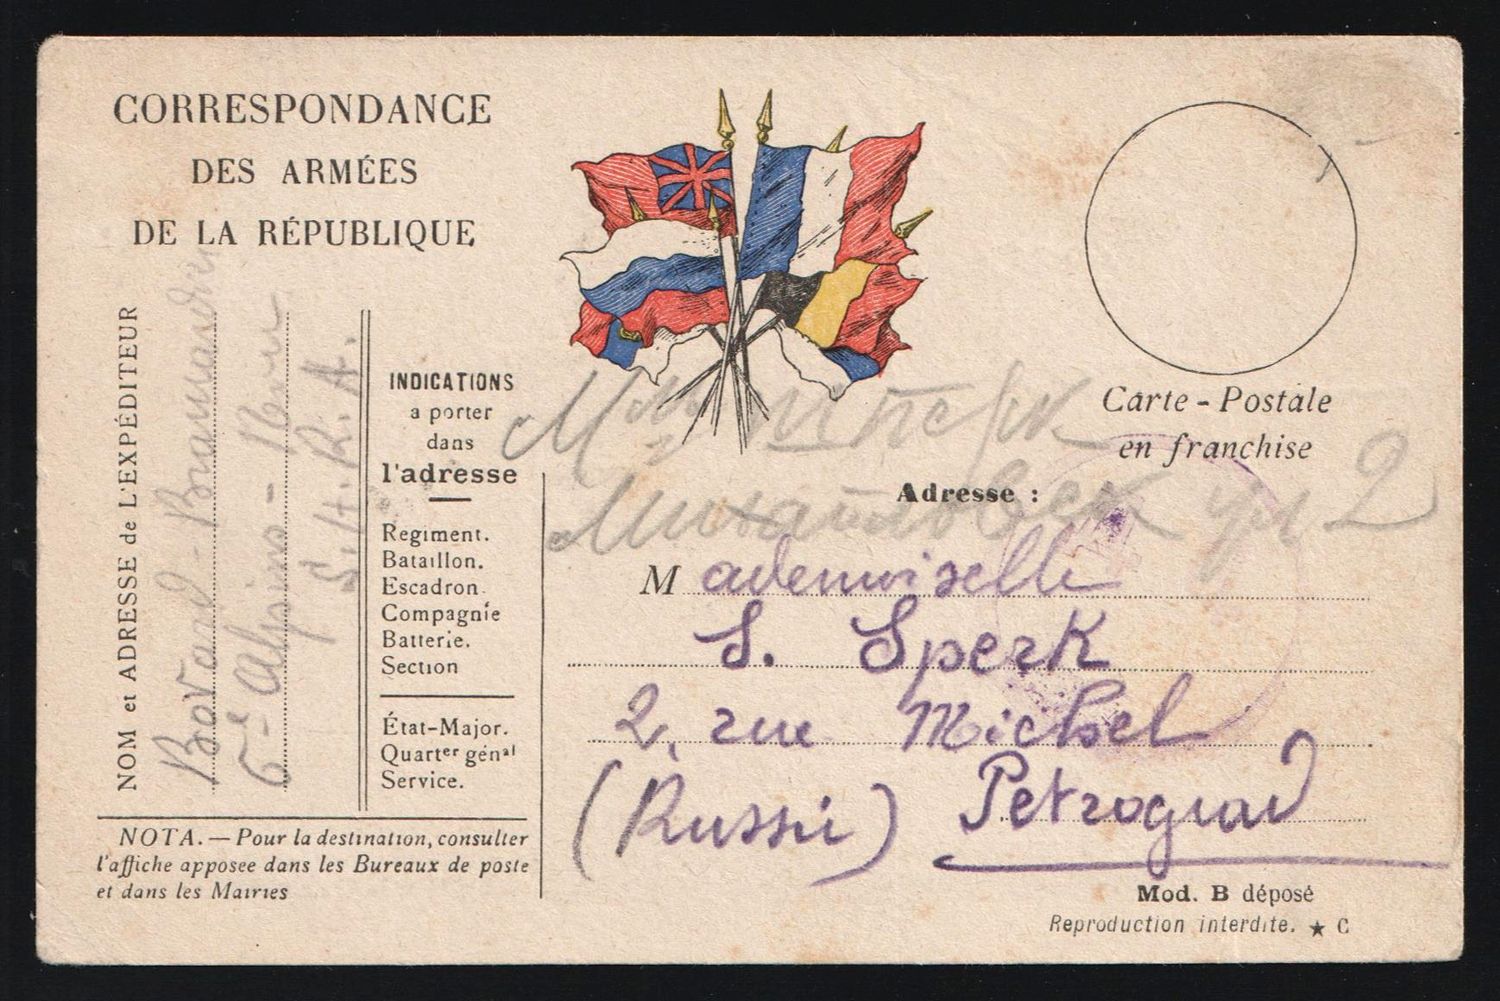 CORRESPONDANCE
DES ARMÉES
DE LA RÉPUBLIQUE
NOM et ADRESSE de L'EXPÉDITEUR
Bovard-
6e Alpins-
S.H.R.A.
INDICATIONS
a porter
dans
l'adresse
Regiment.
Bataillon.
Escadron
Compagnie
Batterie.
Section
État-Major.
Quartᵉʳ génᵃˡ
Service.
NOTA.—Pour la destination, consulter
l'affiche apposee dans les Bureaux de poste
et dans les Mairies
Carte-Postale
en franchise
2
Adresse :
Mademoiselle
S. Sperk
2, rue Michel
(Russie) Petrograd
Mod. B déposé
Reproduction interdite. ★ C